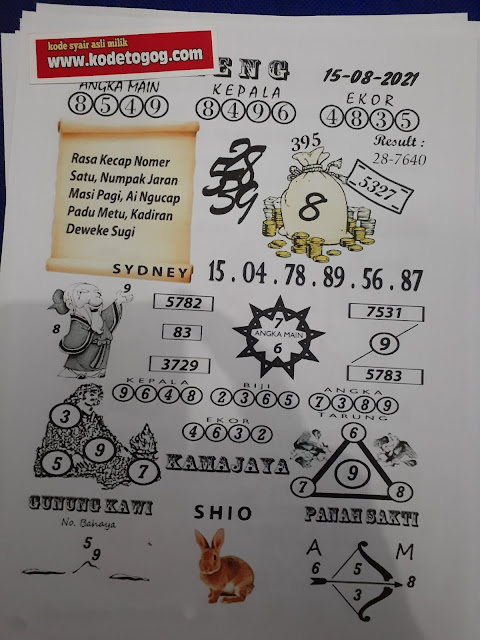 kode syair asli milik
www.kodetogog.com
ENG
15-08-2021
ANGKA MAIN
8 5 4 9
KEPALA
8 4 9 6
EKOR
4 8 3 5
Result :
28-7640
395
5327
8
Rasa Kecap Nomer
Satu, Numpak Jaran
Masi Pagi, Ai Ngucap
Padu Metu, Kadiran
Deweke Sugi
59
SYDNEY
15 . 04 . 78 . 89 . 56 . 87
9
8
5782
83
3729
7
ANGKA MAIN
6
7531
9
5783
KEPALA
9 6 4 8
BIJI
2 3 6 5
ANGKA
7 3 8 9
TARUNG
EKOR
4 6 3 2
3
9
5
7
KAMAJAYA
6
9
7
8
GUNUNG KAWI
No. Bahaya
5
9
SHIO
PANAH SAKTI
A M
6
5
8
3